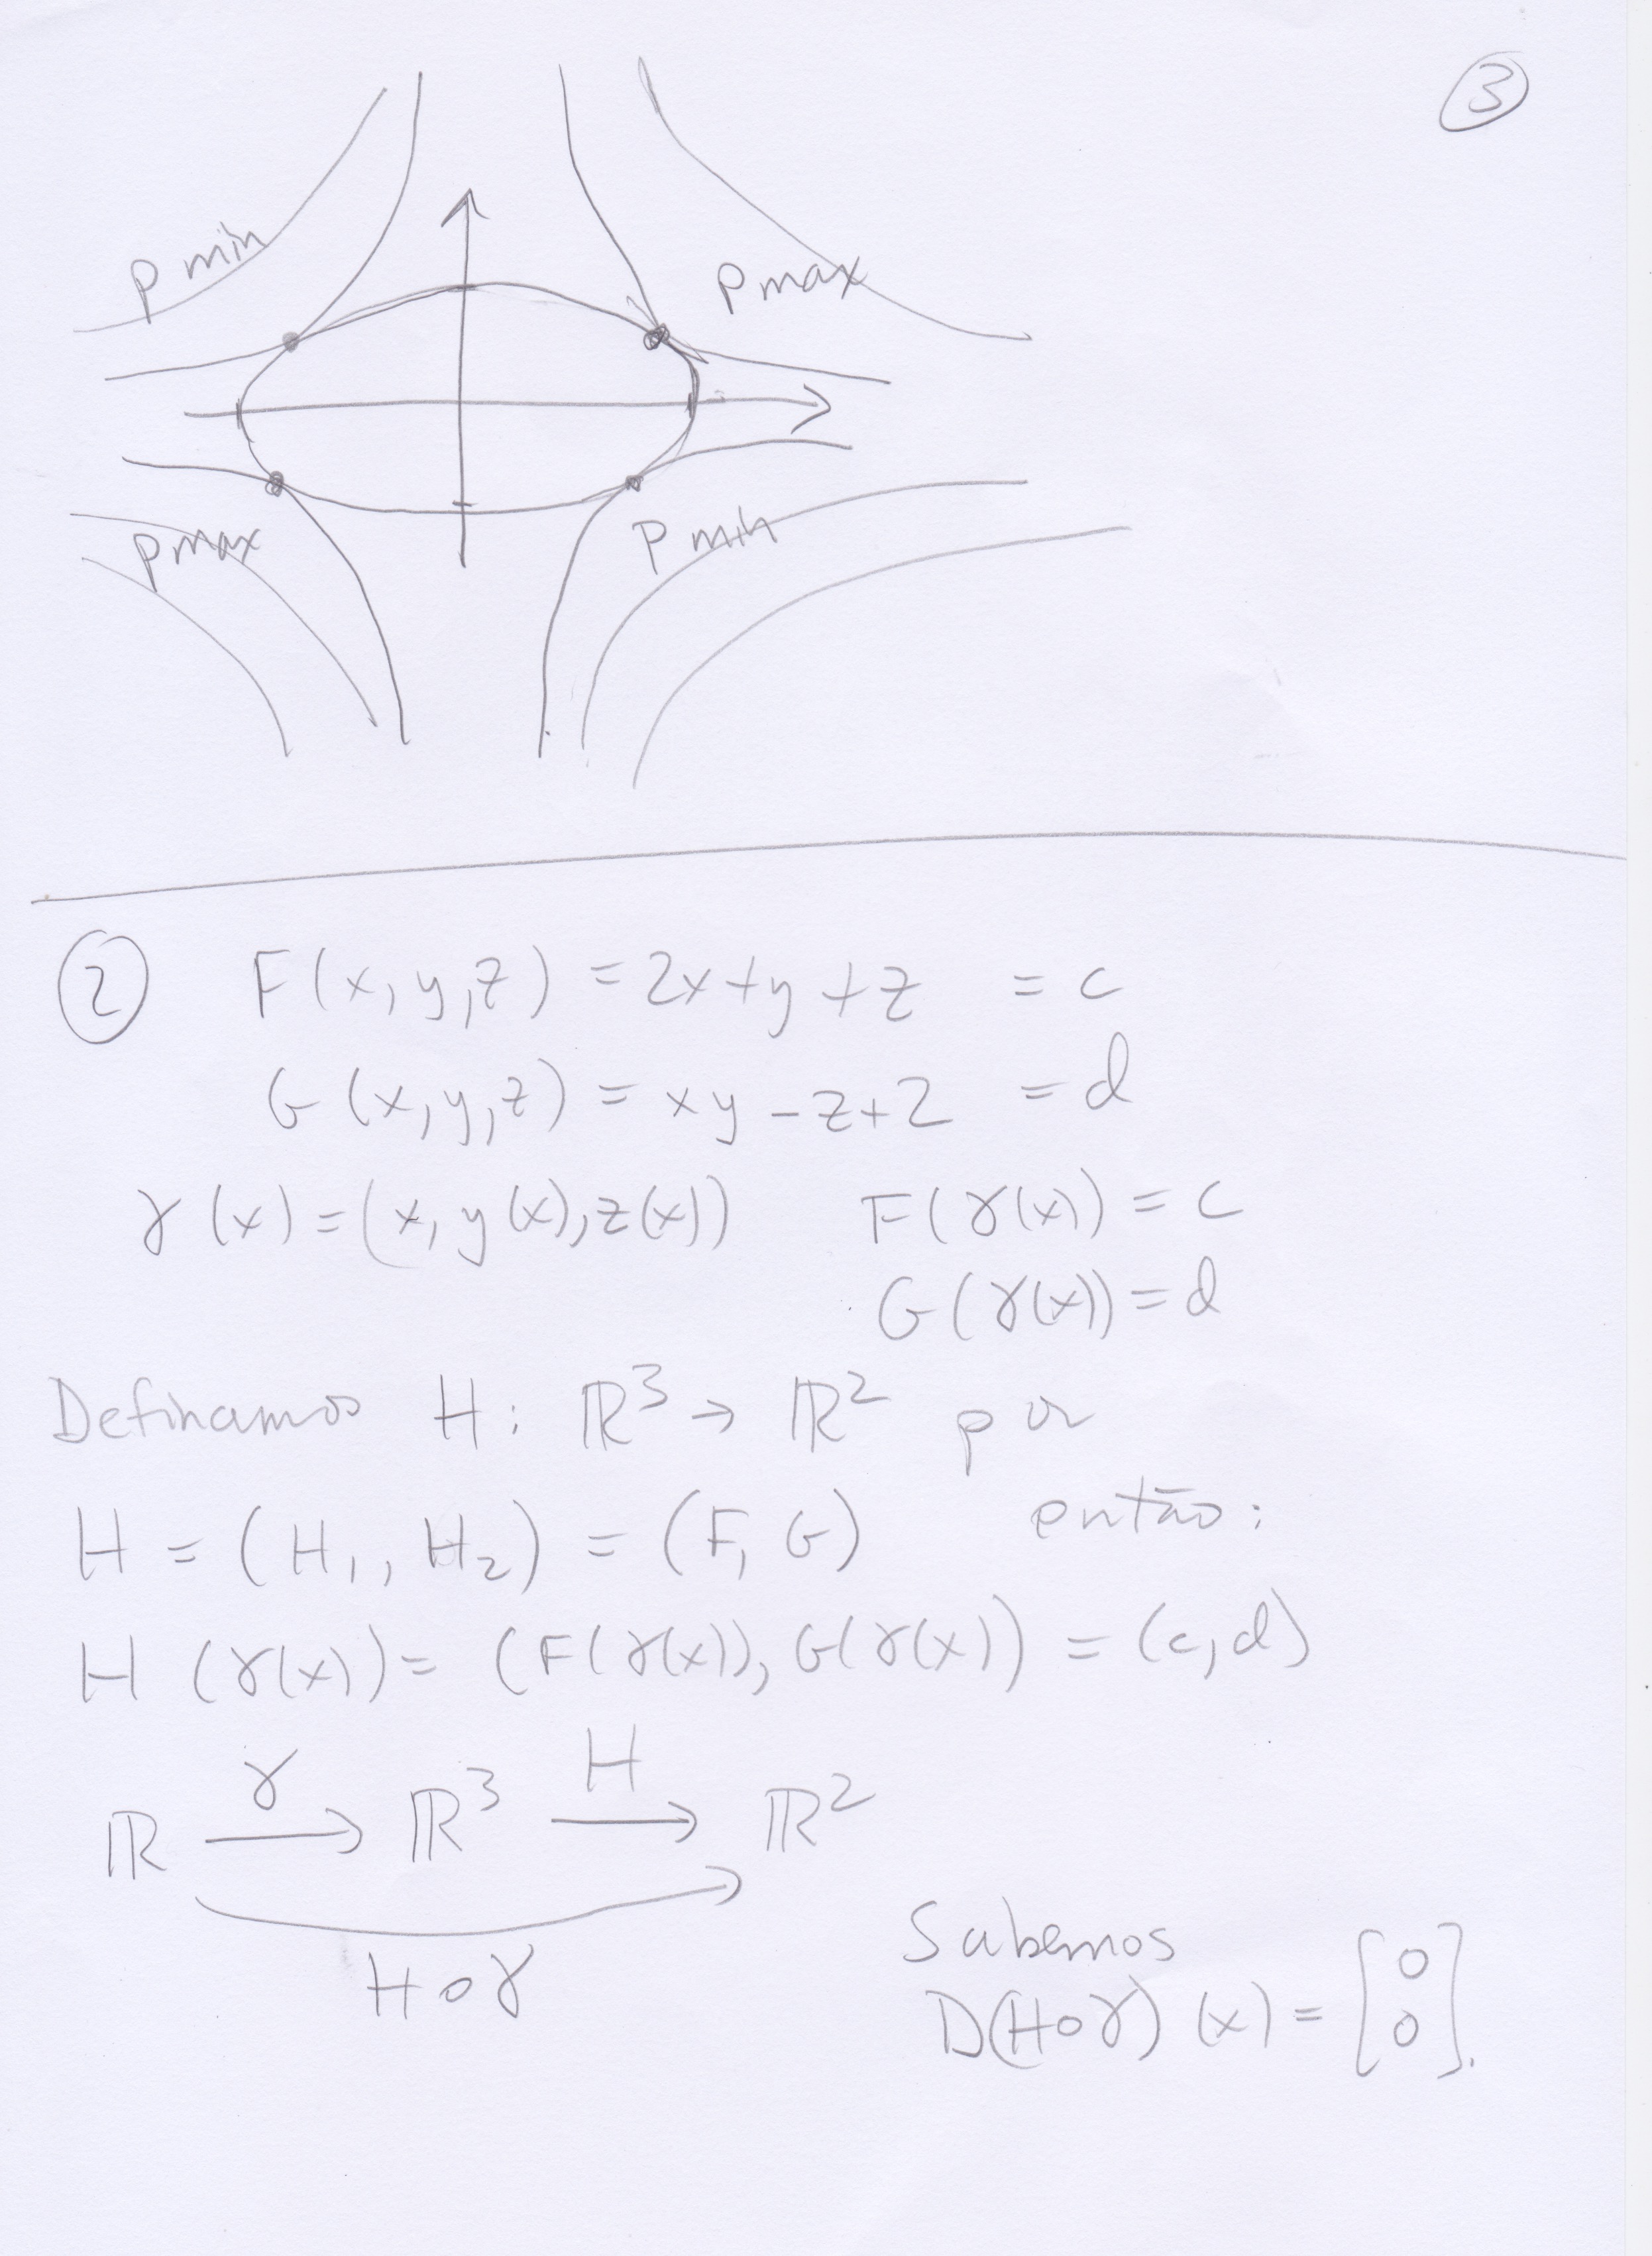 3
p min
p max
p max
p min
2 F(x,y,z) = 2x+y+z = c
G(x,y,z) = xy-z+2 = d
γ(x)=(x,y(x),z(x)) F(γ(x)) = c
G(γ(x)) = d
Definamos H: ℝ³ → ℝ² por
H = (H₁, H₂) = (F, G) então:
H(γ(x)) = (F(γ(x)), G(γ(x)) = (c,d)
γ H
ℝ → ℝ³ → ℝ²
H∘γ
Sabemos
D(H∘γ)(x) = [0 0].